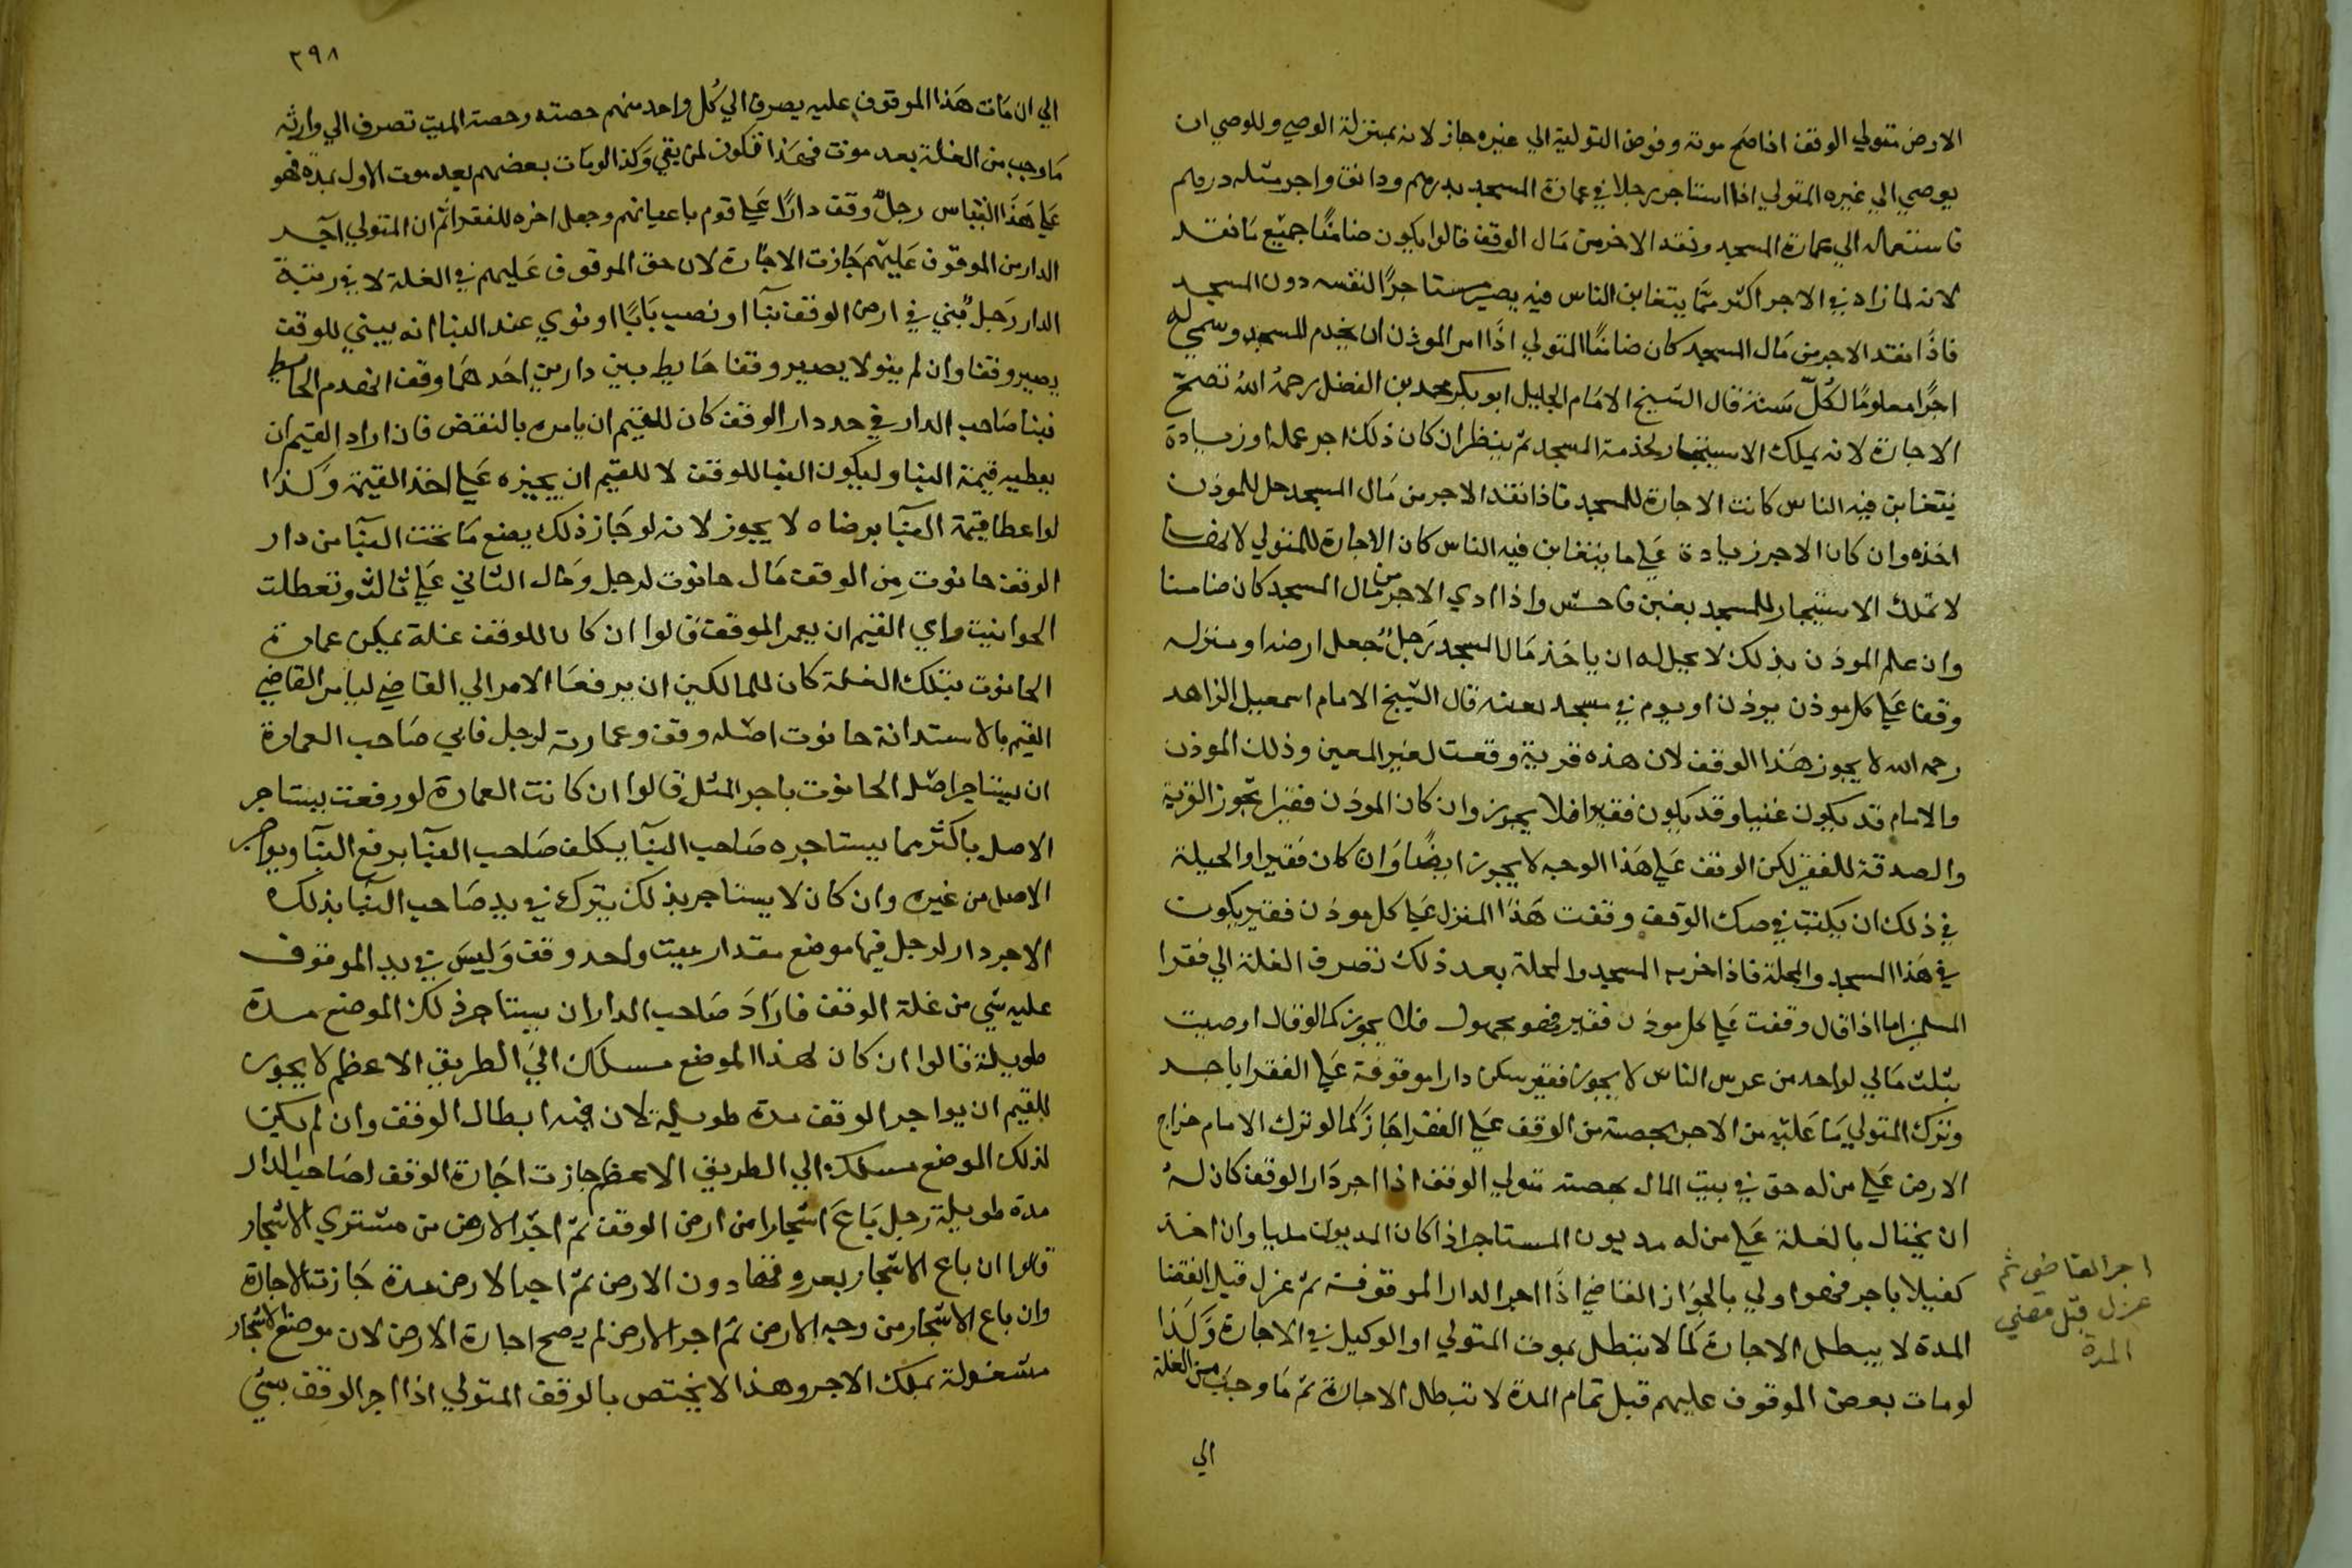 الارض متولي الوقف اذا صح موته وفوض التولية الي غيره جاز لانه بمنزلة الوصي وللوصي ان
يوصي الي غيره المتولي اذا استاجر رجلا في عمارة المسجد بدرهم ودانق واجر مثله درهم
فاستعمله الي عمارة المسجد ونقد الاجر من مال الوقف قالوا يكون ضامنا جميع ما نقد
لانه لما زاد في الاجر اكثر مما يتغابن الناس فيه يصير مستاجرا لنفسه دون المسجد
فاذا نقد الاجر من مال المسجد كان ضامنا المتولي اذا امر الموذن ان يخدم المسجد وسمي له
اجرا معلوما لكل سنة قال الشيخ الامام الجليل ابو بكر محمد بن الفضل رحمه الله تصح
الاجارة لانه يملك الاستيجار لخدمة المسجد ثم ينظر ان كان ذلك اجر عمله او زيادة
يتغابن فيه الناس كانت الاجارة للمسجد فاذا نقد الاجر من مال المسجد حل للموذن
اخذه وان كان الاجر زيادة علي ما يتغابن فيه الناس كان الاجارة للمتولي لانه
لا تملك الاستيجار للمسجد بغبن فاحش واذا ادي الاجر من مال المسجد كان ضامنا
وان علم الموذن بذلك لا يحل له ان ياخذ مال المسجد رجل جعل ارضه او منزله
وقفا علي كل موذن يوذن او يوم في مسجد بعينه قال الشيخ الامام اسمعيل الزاهد
رحمه الله لا يجوز هذا الوقف لان هذه قربة وقعت لغير المعين وذلك الموذن
والامام قد يكون غنيا وقد يكون فقيرا فلا يجوز وان كان الموذن فقيرا تجوز القربة
والصدقة للفقير لكن الوقف علي هذا الوجه لا يجوز ايضا وان كان فقيرا والحيلة
في ذلك ان يكتب في صك الوقف وقفت هذا المنزل علي كل موذن فقير يكون
في هذا المسجد والمحلة فاذا خرب المسجد والمحلة بعد ذلك تصرف الغلة الي فقرا
المسلمين اما اذا قال وقفت علي كل موذن فقير فهو مجهول فلا يجوز كما لو قال اوصيت
بثلث مالي لواحد من عرض الناس لا يجوز فقير سكن دارا موقوفة علي الفقرا باجر
وترك المتولي ما عليه من الاجر بحصته من الوقف علي الفقرا جاز كما لو ترك الامام خراج
الارض علي من له حق في بيت المال بحصته متولي الوقف اذا اجر دار الوقف كان له
ان يحتال بالغلة علي من له مديون المستاجر اذا كان المديون مليا وان اخذ
كفيلا باجر فهو اولي بالجواز القاضي اذا اجر الدار الموقوفة ثم عزل قبل انقضا
المدة لا يبطل الاجارة كما لا تبطل بموت المتولي او الوكيل في الاجارة وكذا
لو مات بعض الموقوف عليهم قبل تمام المدة لا تبطل الاجارة ثم ما وجب من الغلة
الي
اجر القاضي ثم
عزل قبل مضي
المدة
٢٩٨
الي ان مات هذا الموقوف عليه يصرف الي كل واحد منهم حصته وحصة الميت تصرف الي وارثه
ما وجب من الغلة بعد موت فهذا فكون لمن بقي وكذا لو مات بعضهم بعد موت الاول بمدة فهو
علي هذا القياس رجل وقف دارا علي قوم باعيانهم وجعل اخره للفقرا ثم ان المتولي آجر
الدار من الموقوف عليهم جازت الاجارة لان حق الموقوف عليهم في الغلة لا في رقبة
الدار رجل بني في ارض الوقف بنآ او نصب بابا او نوي عند البنا انه يبني للوقف
يصير وقفا وان لم ينو لا يصير وقفا حايط بين دارين احدهما وقف انهدم الحايط
فبنا صاحب الدار في حد دار الوقف كان للقيم ان يامره بالنقض فان اراد القيم ان
يعطيه قيمة البنا وليكون البنا للوقف لا للقيم ان يجبره علي اخذ القيمة وكذا
لو اعطا قيمة البنآ برضاه لا يجوز لانه لو جاز ذلك يضع ما تحت البنآ من دار
الوقف حانوت من الوقف مال حانوت لرجل ومال الثاني علي ثالث وتعطلت
الحوانيت واي القيم ان يعمر الموقف قالوا ان كان للوقف غلة يمكن عمارة
الحانوت بتلك الغلة كان للمالكين ان يرفعا الامر الي القاضي ليامر القاضي
القيم بالاستدانة حانوت اصله وقف وعمارته لرجل فابي صاحب العمارة
ان يستاجر اصل الحانوت باجر المثل قالوا ان كانت العمارة لو رفعت يستاجر
الاصل باكثر مما يستاجره صاحب البنآ يكلف صاحب البنآ برفع البنآ ويواجر
الاصل من غيره وان كان لا يستاجر بذلك يترك في يد صاحب البنآ بذلك
الاجر دار لرجل فيها موضع مقدار بيت واحد وقف وليس في يد الموقوف
عليه شي من غلة الوقف فاراد صاحب الدار ان يستاجر ذلك الموضع مدة
طويلة قالوا ان كان لهذا الموضع مسلك الي الطريق الاعظم لا يجوز
للقيم ان يواجر الوقف مدة طويلة لان فيه ابطال الوقف وان لم يكن
لذلك الموضع مسلك الي الطريق الاعظم جازت اجارة الوقف لصاحب الدار
مدة طويلة رجل باع اشجارا من ارض الوقف ثم اجر الارض من مشتري الاشجار
قالوا ان باع الاشجار بعروقها دون الارض ثم اجر الارض مدة جازت الاجارة
وان باع الاشجار من وجه الارض ثم اجر الارض لم يصح اجارة الارض لان موضع الاشجار
مشغولة بملك الاجر وهذا لا يختص بالوقف المتولي اذا اجر الوقف بشي